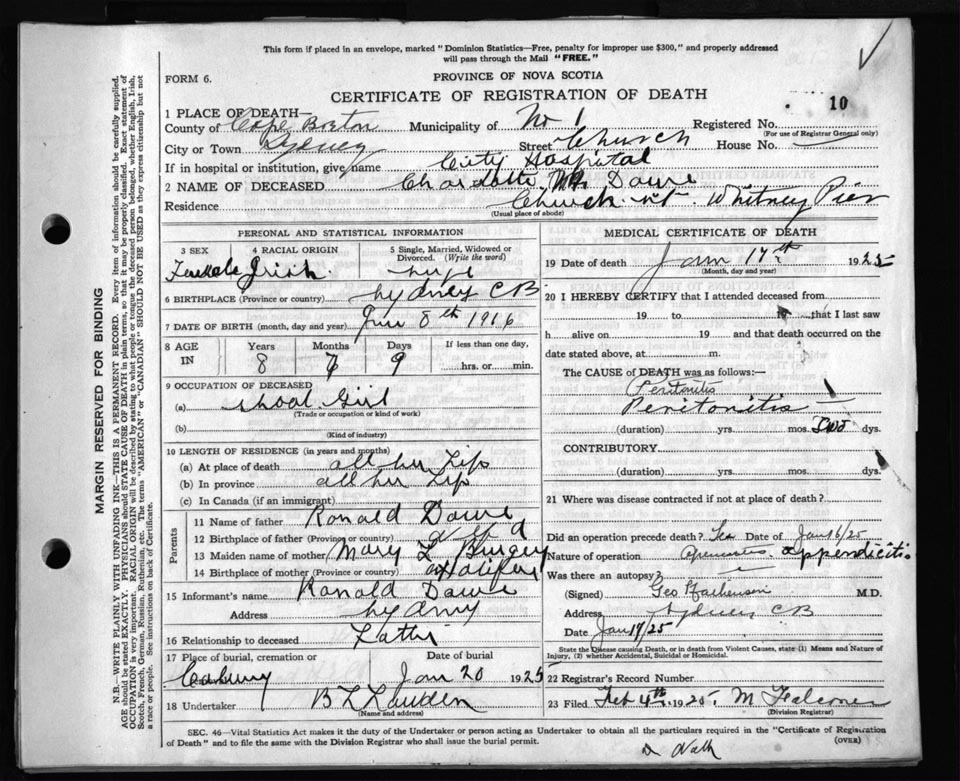 This form if placed in an envelope, marked "Dominion Statistics—Free, penalty for improper use $300," and properly addressed
will pass through the Mail "FREE."
FORM 6.
PROVINCE OF NOVA SCOTIA
CERTIFICATE OF REGISTRATION OF DEATH
10
1 PLACE OF DEATH—
County of Cape Breton Municipality of No 1 Registered No.
(For use of Registrar General only)
City or Town Sydney Street Church House No.
If in hospital or institution, give name City Hospital
2 NAME OF DECEASED Dawe
Residence Church st. Whitney Pier
(Usual place of abode)
PERSONAL AND STATISTICAL INFORMATION
3 SEX 4 RACIAL ORIGIN 5 Single, Married, Widowed or Divorced. (Write the word)
Female Irish
6 BIRTHPLACE (Province or country) Sydney CB
7 DATE OF BIRTH (month, day and year) 8th 1916
8 AGE IN Years Months Days If less than one day,
8 7 9 hrs. or min.
9 OCCUPATION OF DECEASED
(a) School Girl
(Trade or occupation or kind of work)
(b)
(Kind of industry)
10 LENGTH OF RESIDENCE (in years and months)
(a) At place of death all her Life
(b) In province all her Life
(c) In Canada (if an immigrant)
Parents
11 Name of father Ronald Dawe
12 Birthplace of father (Province or country) Nfld
13 Maiden name of mother Mary L
14 Birthplace of mother (Province or country) Halifax
15 Informant's name Ronald Dawe
Address Sydney
16 Relationship to deceased Father
17 Place of burial, cremation or Date of burial
Jan 20 1925
18 Undertaker
(Name and address)
MEDICAL CERTIFICATE OF DEATH
19 Date of death Jan 17th 1925
(Month, day and year)
20 I HEREBY CERTIFY that I attended deceased from
19 to 19 that I last saw
h alive on 19 and that death occurred on the
date stated above, at m.
The CAUSE of DEATH was as follows:—
Peritonitis
Peritonitis
(duration) yrs. mos. two dys.
CONTRIBUTORY
(duration) yrs. mos. dys.
21 Where was disease contracted if not at place of death?
Did an operation precede death? Yes Date of Jan 16/25
Nature of operation appendicitis
Was there an autopsy?
(Signed) Geo M.D.
Address Sydney, CB
Date Jan 19/25
State the Disease causing Death, or in death from Violent Causes, state (1) Means and Nature of
Injury, (2) whether Accidental, Suicidal or Homicidal.
22 Registrar's Record Number
23 Filed Feb 4th 1925. M
(Division Registrar)
SEC. 46—Vital Statistics Act makes it the duty of the Undertaker or person acting as Undertaker to obtain all the particulars required in the "Certificate of Registration
of Death" and to file the same with the Division Registrar who shall issue the burial permit.
(OVER)
MARGIN RESERVED FOR BINDING
N.B.—WRITE PLAINLY WITH UNFADING INK—THIS IS A PERMANENT RECORD. Every item of information should be carefully supplied.
AGE should be stated EXACTLY. PHYSICIANS should STATE CAUSE OF DEATH in plain terms, so that it may be properly classified. Exact statement of
OCCUPATION is very important. RACIAL ORIGIN will be described by stating to what people or tongue the deceased person belonged, whether English, Irish,
Scotch, French, German, Russian, Ruthenian, etc. The terms "AMERICAN" or "CANADIAN" SHOULD NOT BE USED as they express citizenship but not
a race or people. See instructions on back of Certificate.